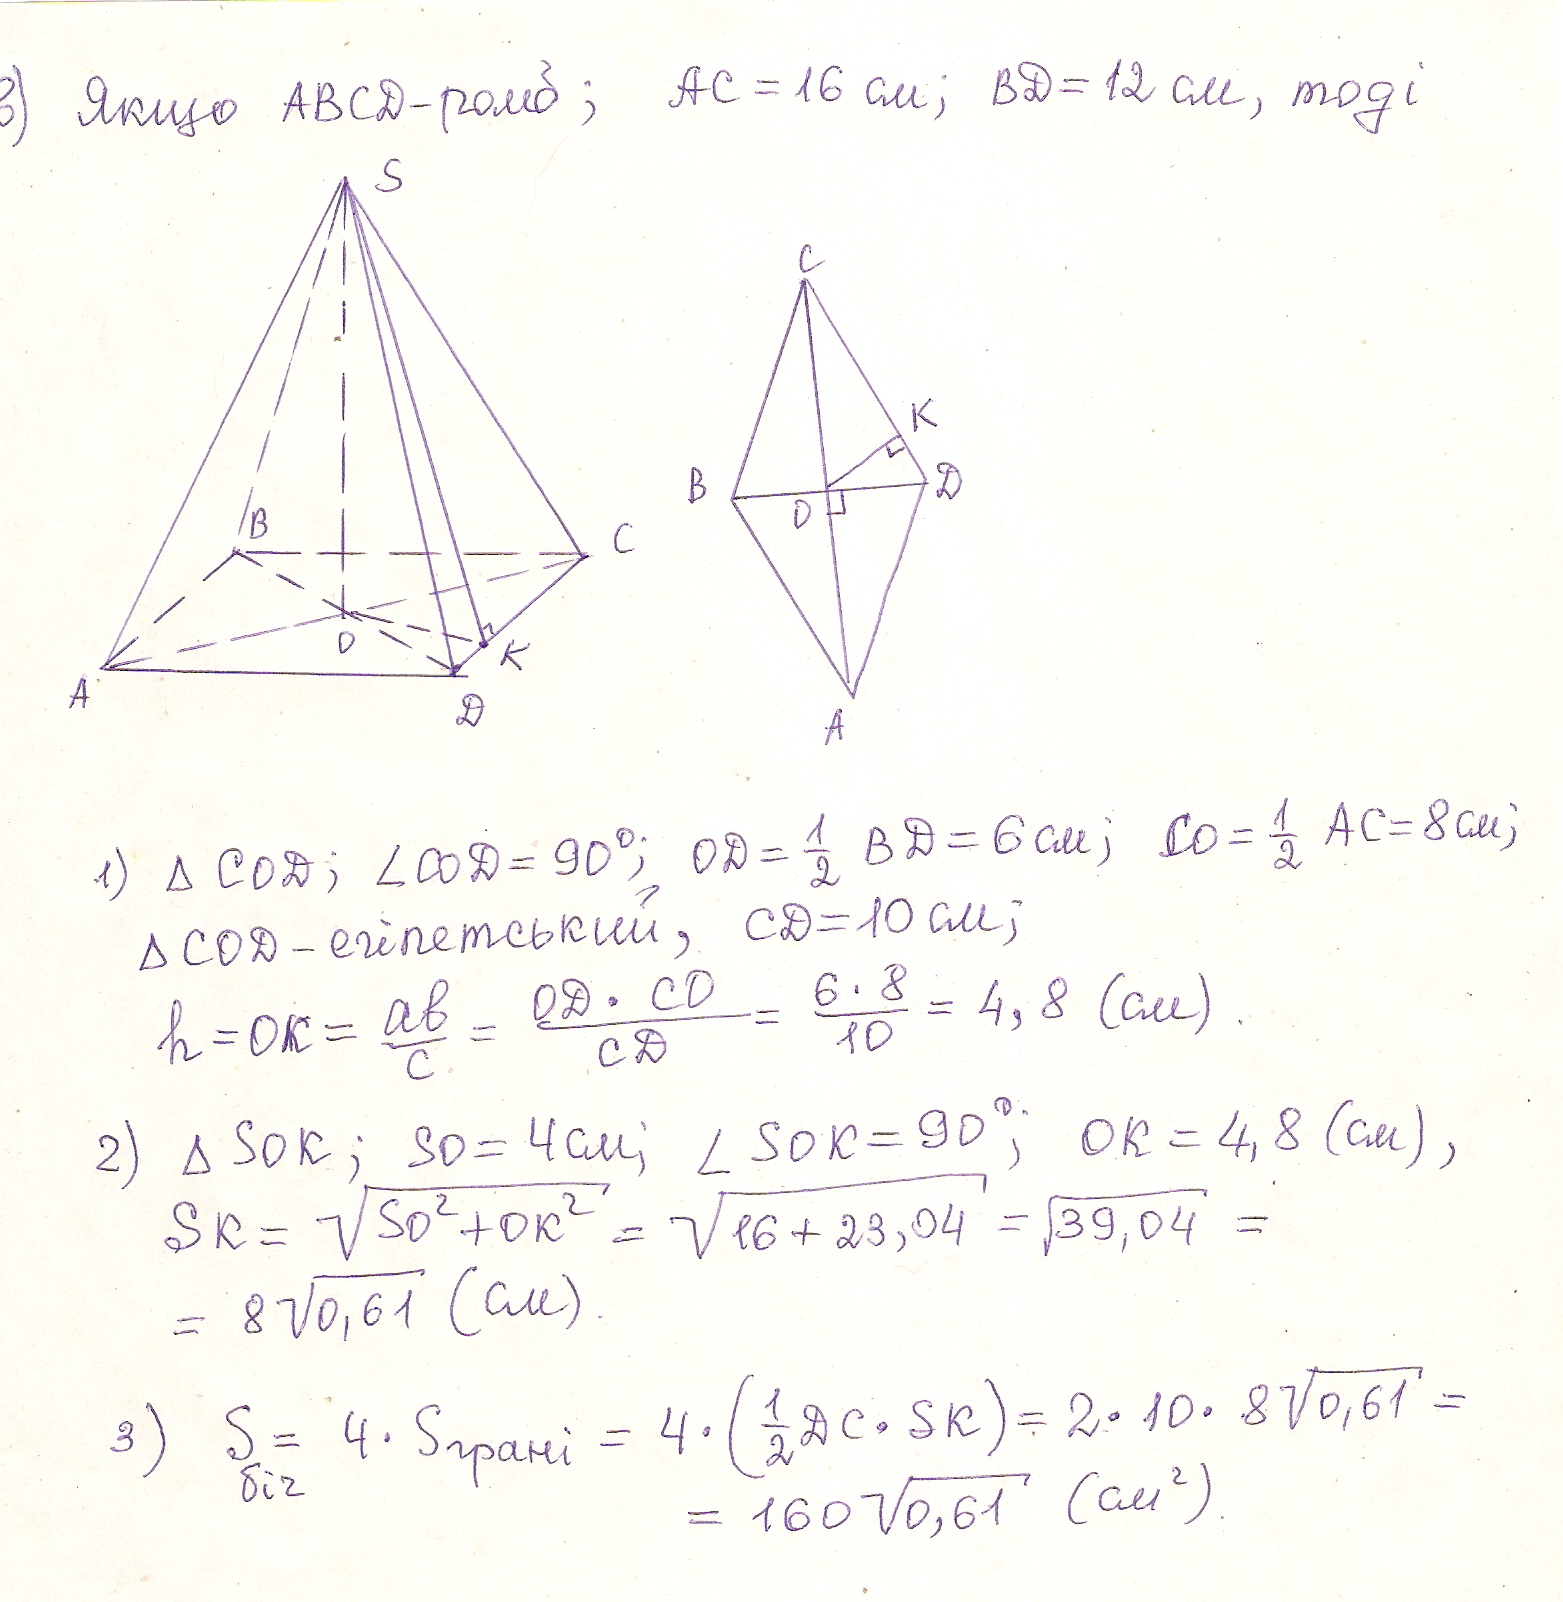 в) Якщо ABCD-ромб; AC = 16 см; BD = 12 см, тоді
S
C
K
B
D
O
A
B
C
O
K
A
D
1) Δ COD; ∠COD = 90°; OD = 1/2 BD = 6 см; CO = 1/2 AC = 8 см;
Δ COD - єгіпетський, CD = 10 см;
h = OK = ab/c = OD · CO/CD = 6 · 8/10 = 4,8 (см).
2) Δ SOK; SO = 4 см; ∠ SOK = 90°; OK = 4,8 (см),
SK = √SO²+OK² = √16 + 23,04 = √39,04 =
= 8√0,61 (см).
3) S біч = 4 · S грані = 4 · (1/2 DC · SK) = 2 · 10 · 8√0,61 =
= 160√0,61 (см²).